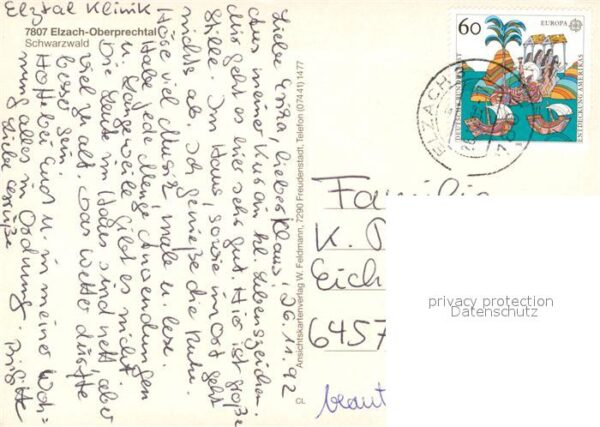 Elztal Klinik
7807 Elzach-Oberprechtal
Schwarzwald
26.11.92
Liebe Erika, lieber Klaus!
Aus meiner Kur ein kl. Lebenszeichen.
Mir geht es hier sehr gut. Hier ist große
Stille. Im Haus, sowie im Ort geht
nichts ab. Ich genieße die Ruhe.
Höre viel Musik, male u. lese.
Habe jede Menge Anwendungen
u. Langeweile gibt es nicht.
Die Leute im Haus sind nett, aber
viel zu alt. Das Wetter dürfte
besser sein.
Hoffe bei Euch u. in meiner Woh-
nung alles in Ordnung.
Liebe Grüße Brigitte
CL Ansichtskartenverlag W. Feldmann, 7290 Freudenstadt, Telefon (07441) 1477
60
EUROPA
DEUTSCHE BUNDESPOST
ENTDECKUNG AMERIKAS
ELZACH
Familie
K.
Eich
6457
privacy protection
Datenschutz